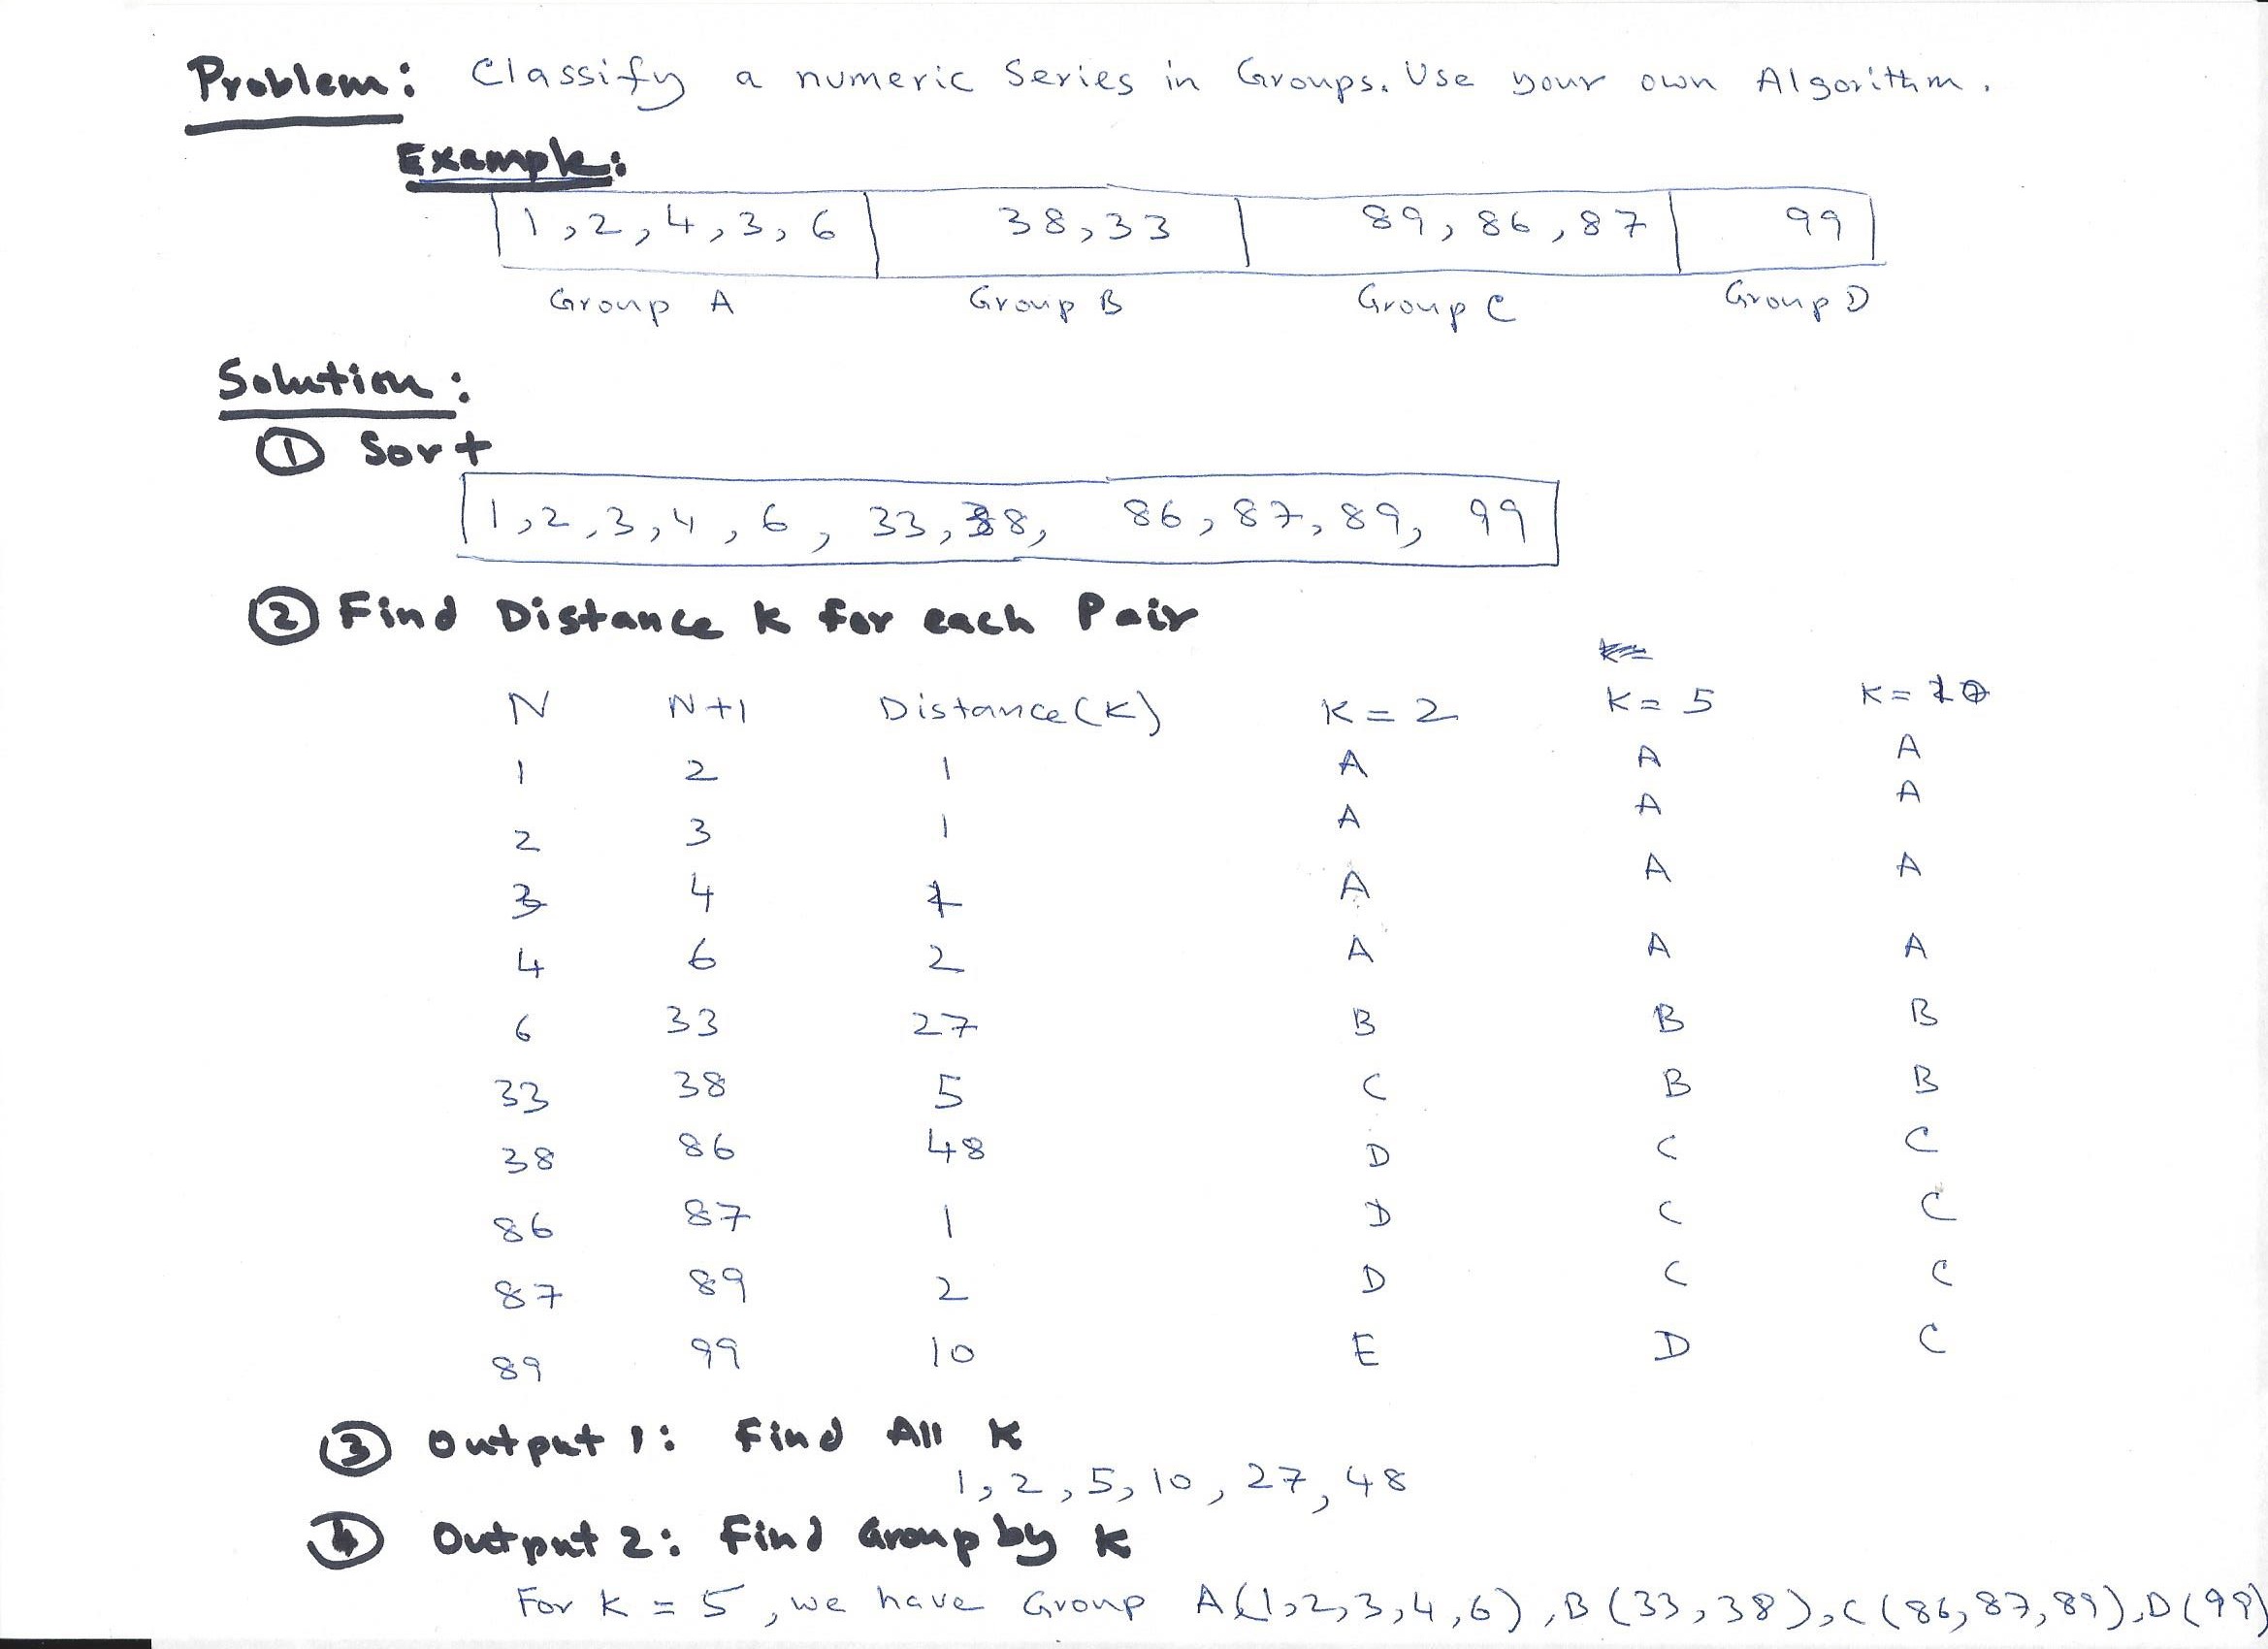 Problem: Classify a numeric Series in Groups. Use your own Algorithm.
Example:
1, 2, 4, 3, 6 38, 33 89, 86, 87 99
Group A Group B Group C Group D
Solution:
① Sort
1, 2, 3, 4, 6, 33, 38, 86, 87, 89, 99
② Find Distance K for each Pair
N N+1 Distance(K) K=2 K=5 K=10
1 2 1 A A A
2 3 1 A A A
3 4 1 A A A
4 6 2 A A A
6 33 27 B B B
33 38 5 C B B
38 86 48 D C C
86 87 1 D C C
87 89 2 D C C
89 99 10 E D C
③ Output 1: Find All K
1, 2, 5, 10, 27, 48
④ Output 2: Find Group by K
For K = 5, we have Group A(1,2,3,4,6), B(33,38), C(86,87,89), D(99)